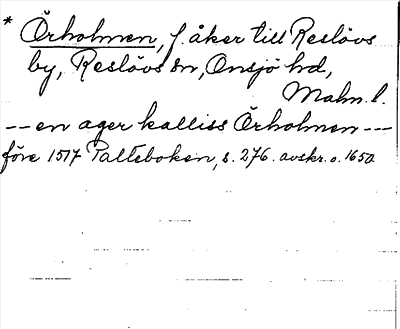 * Örholmen, f. åker till Reslövs
by, Reslövs sn, Onsjö hd,
Malm. l.
-- en ager kalliss Örholmen ---
före 1517 Palteboken, s. 276. avskr. o. 1650.